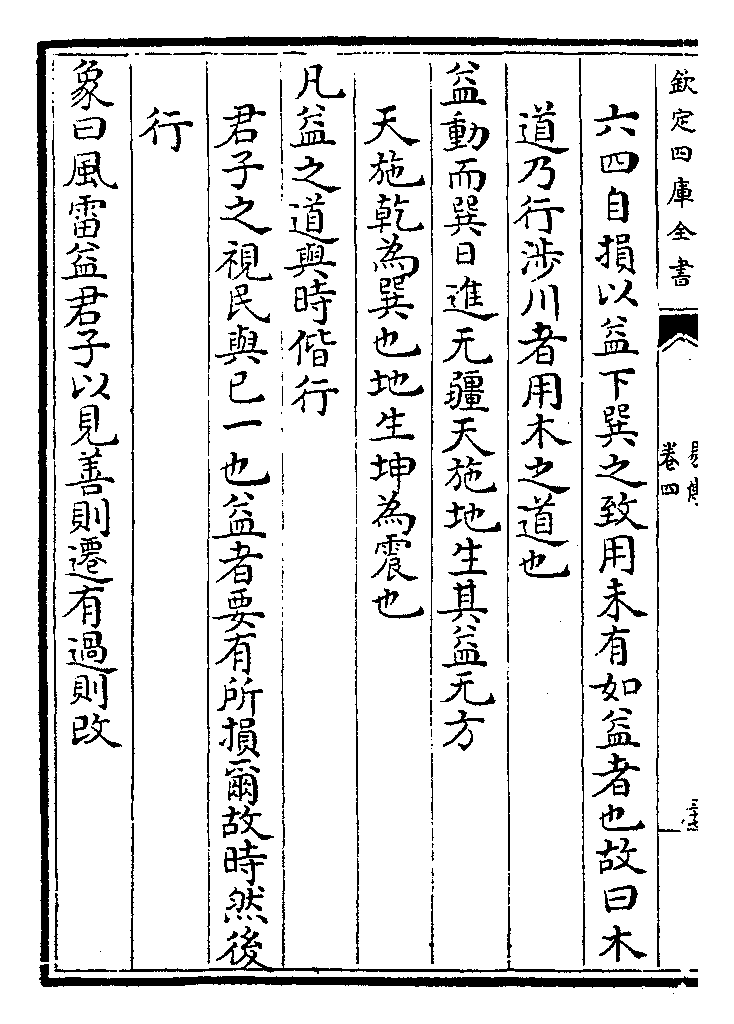 欽定四庫全書
卷四
六四自損以益下巽之致用未有如益者也故曰木
道乃行涉川者用木之道也
益動而巽日進无疆天施地生其益无方
天施乾為巽也地生坤為震也
凡益之道與時偕行
君子之視民與已一也益者要有所損爾故時然後
行
象曰風雷益君子以見善則遷有過則改